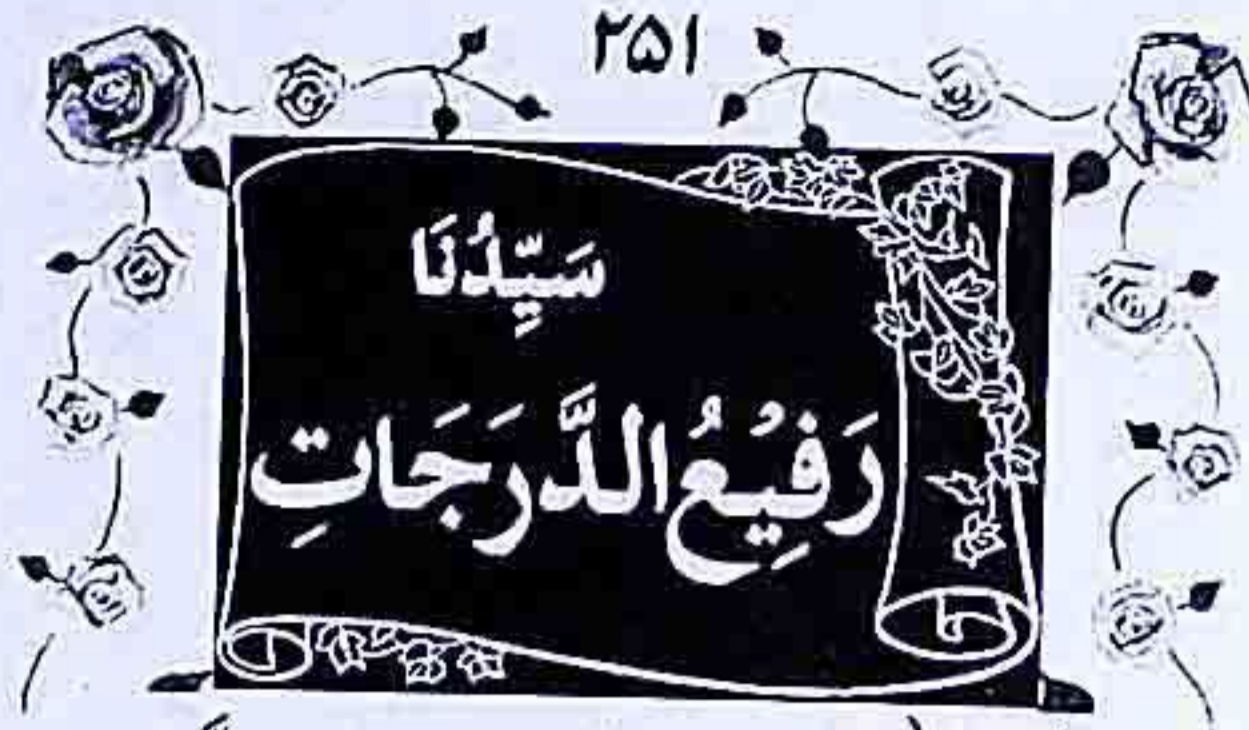 ۲۵۱
سَیِّدُنَا
رَفِیْعُ الدَّرَجَاتِ